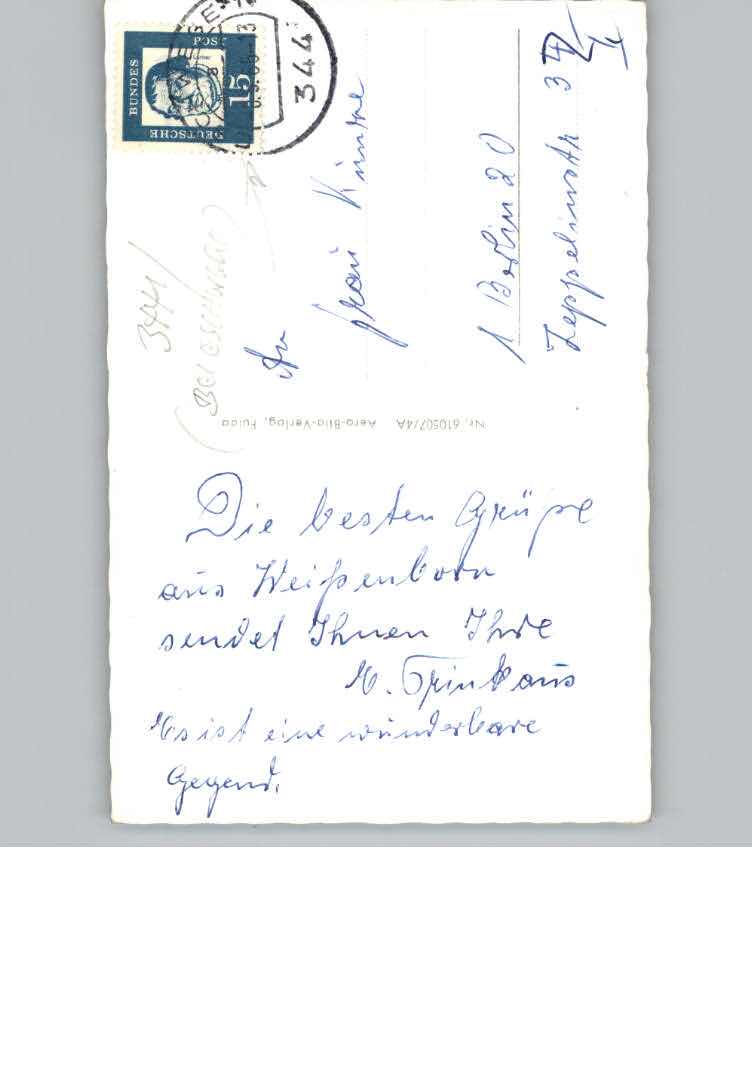 Die besten Grüße
aus Weißenborn
sendet Ihnen Ihre
E. Trinkaus
Es ist eine wunderbare
Gegend.
Nr. 610507/4A Aero-Bild-Verlag, Fulda
An
Frau
1 Berlin 20
Zeppelinstr 34
3441
DEUTSCHE
BUNDES
POST
15
344